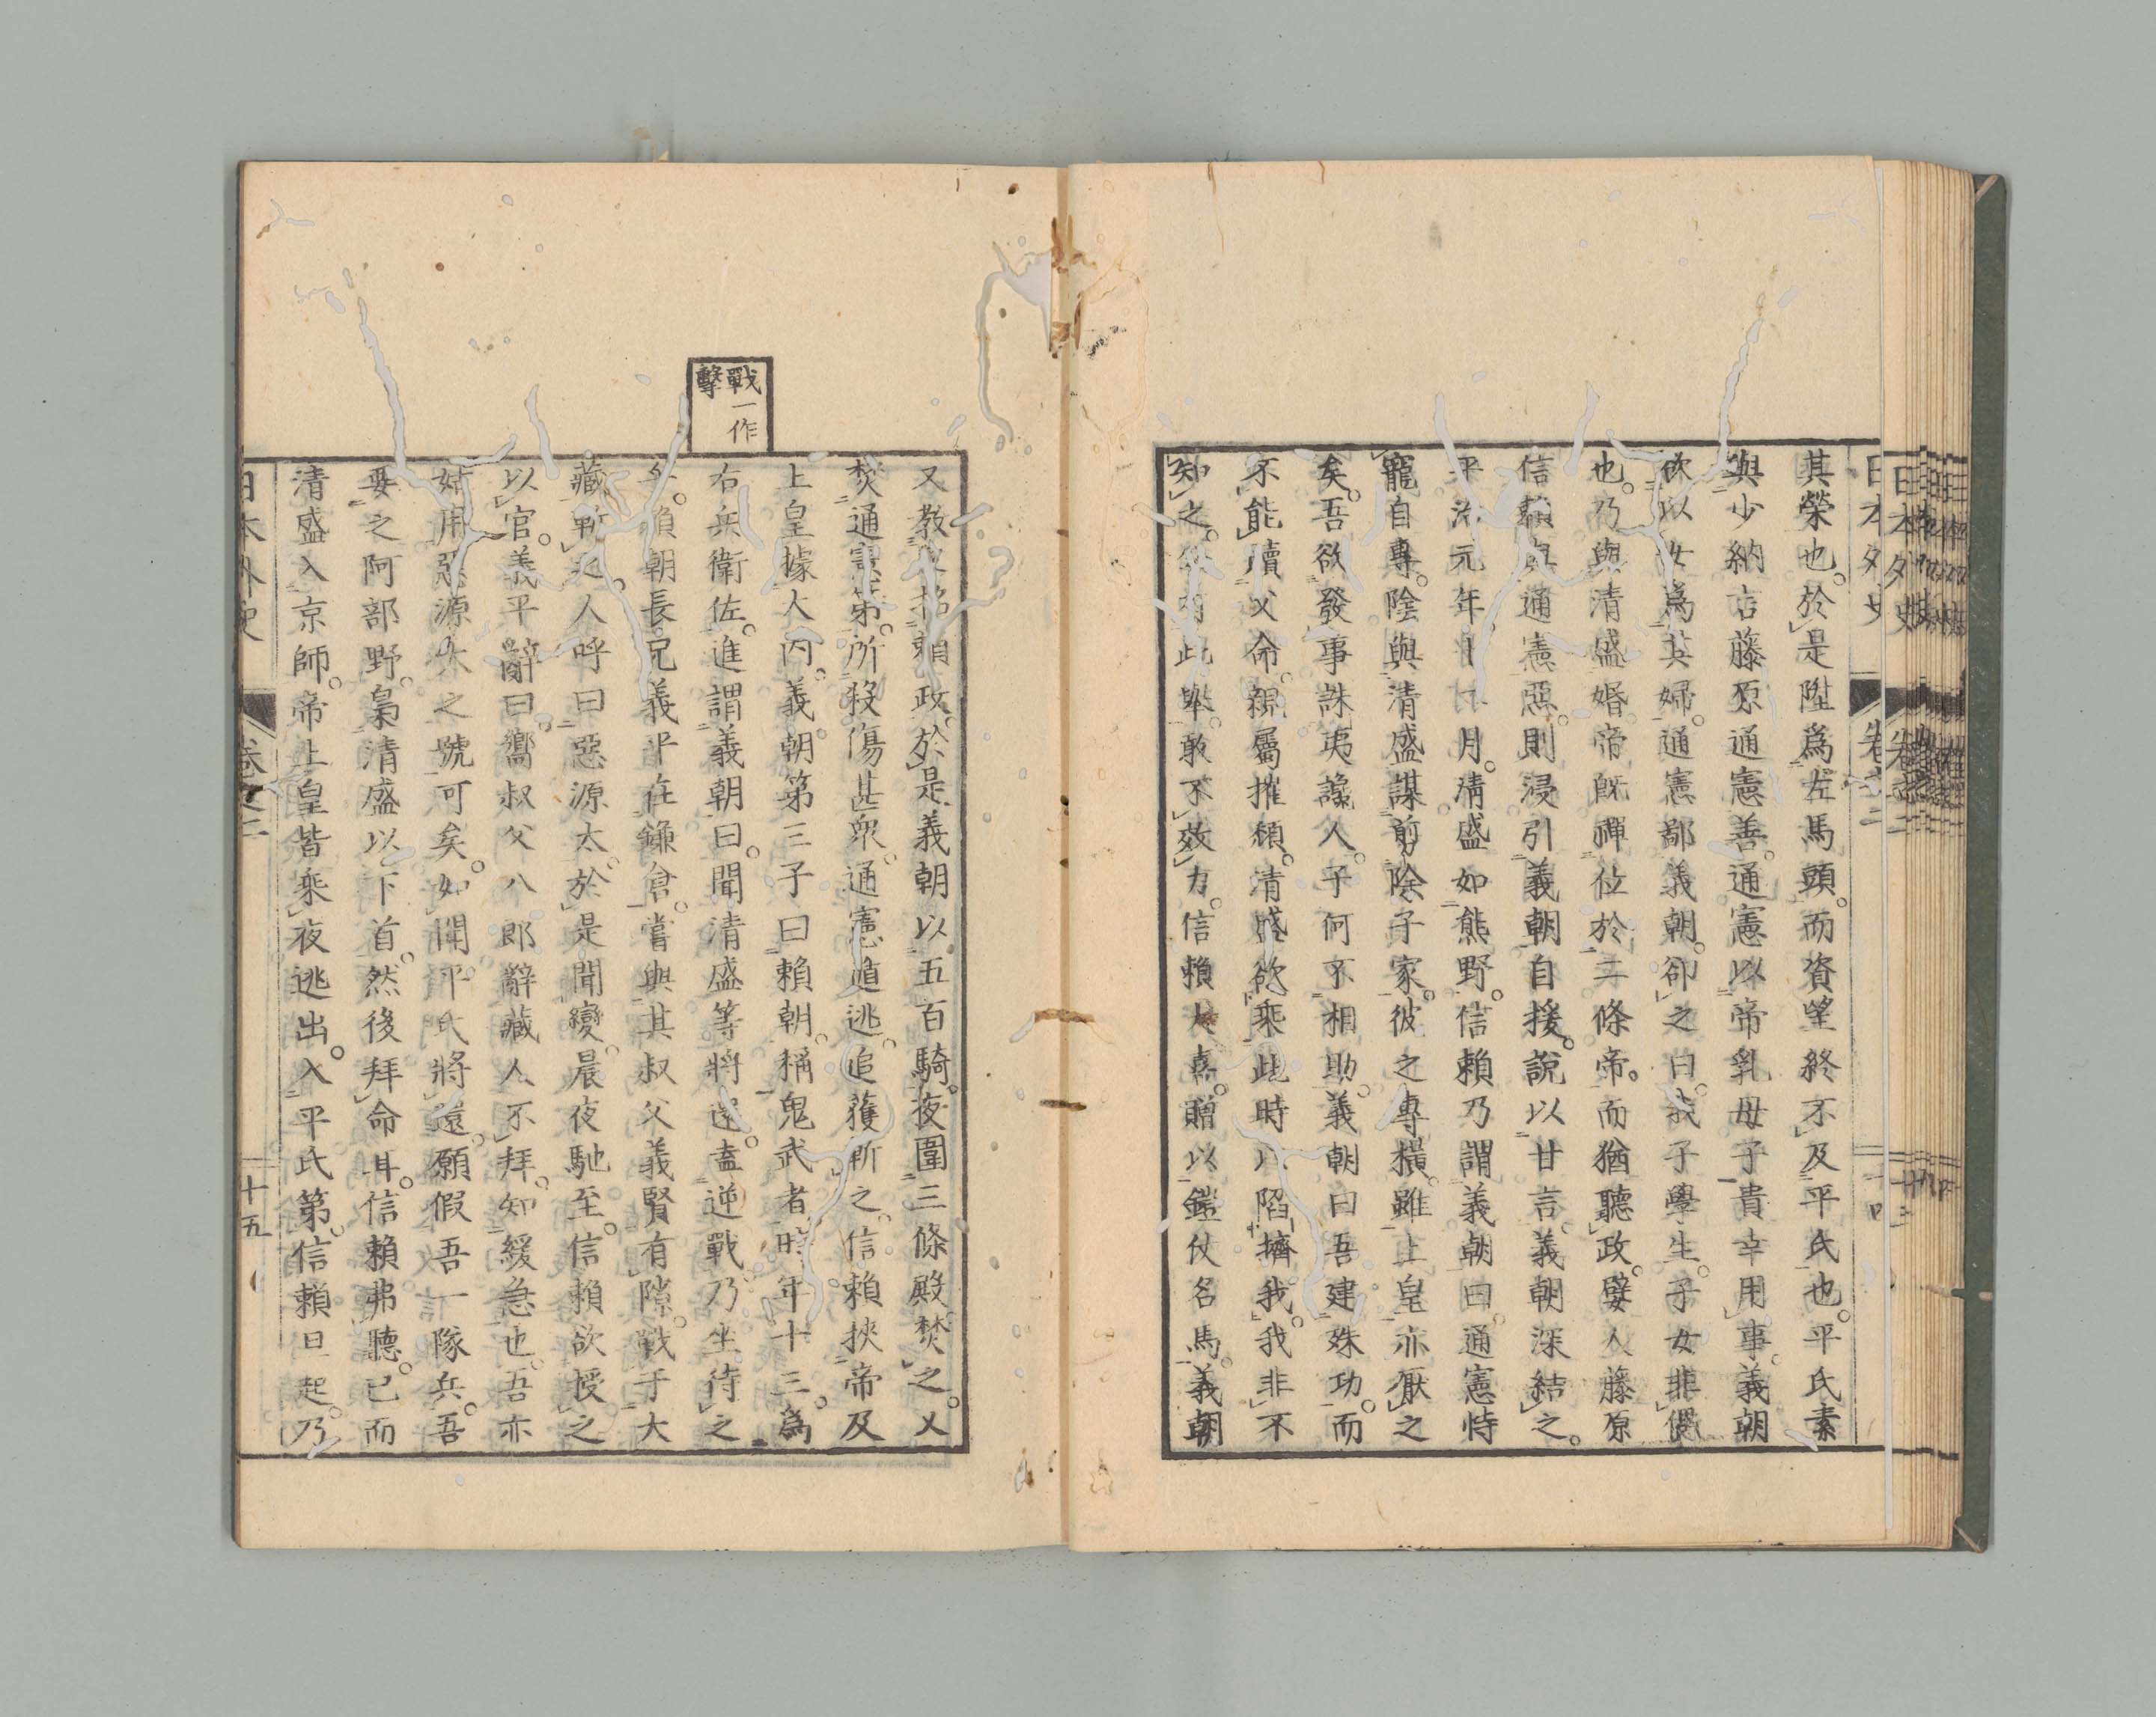 其榮也。於是陞爲左馬頭。而資望終不及平氏也。平氏素
與少納言藤原通憲善。通憲以帝乳母子貴幸用事。義朝
欲以女爲其婦。通憲鄙義朝。卻之曰。我子學生。子女非偶
也。乃與清盛婚。帝既禪位於二條帝。而猶聽政。嬖人藤原
信賴與通憲惡。則浸引義朝自援。說以甘言。義朝深結之。
平治元年十二月。清盛如熊野。信賴乃謂義朝曰。通憲恃
寵自專。陰與清盛謀剪除子家。彼之專橫。雖上皇亦厭之
矣。吾欲發事誅夷讒人。子何不相助。義朝曰。吾建殊功。而
不能贖父命。親屬摧頽。清盛欲乘此時以陷擠我。我非不
知之。有此擧。敢不效力。信賴大喜。贈以鎧仗名馬。義朝
日本外史 卷之二 十四
戰一作
擊
又教賴政。於是義朝以五百騎。夜圍三條殿。焚之。又
焚通憲第。所殺傷甚衆。通憲遁逃。追獲斬之。信賴挾帝及
上皇據大內。義朝第三子曰賴朝。稱鬼武者。時年十三。爲
右兵衞佐。進謂義朝曰。聞清盛等將還。盍逆戰。乃坐待之
乎。賴朝長兄義平在鎌倉。嘗與其叔父義賢有隙。戰于大
藏斬之。人呼曰惡源太。於是聞變。晨夜馳至。信賴欲授之
以官。義平辭曰。嚮叔父八郎辭藏人不拜。知緩急也。吾亦
姑用惡源太之號可矣。如聞平氏將還。願假吾一隊兵。吾
要之阿部野。梟清盛以下首。然後拜命耳。信賴弗聽。已而
清盛入京師。帝上皇皆乘夜逃出。入平氏第。信賴旦起。乃
日本外史 卷之二 十五